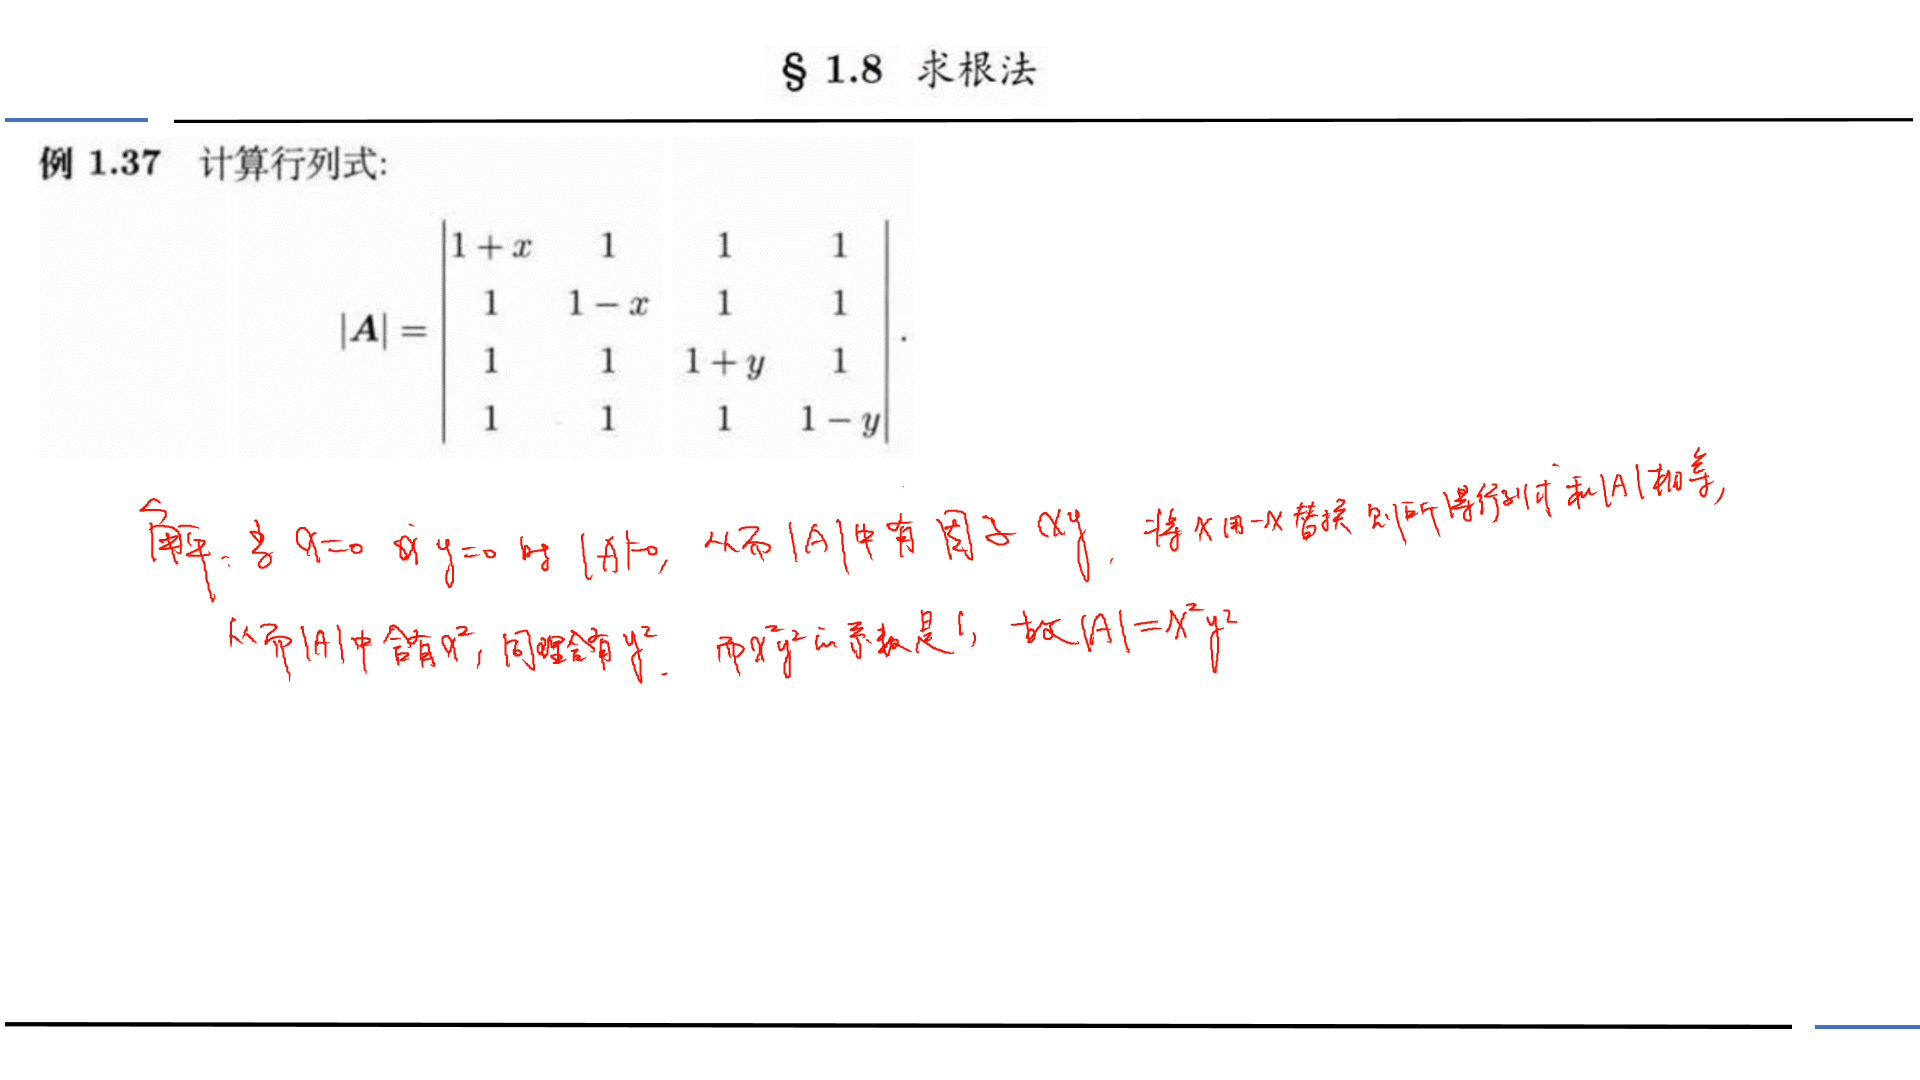 § 1.8 求根法
例 1.37 计算行列式:
|A| = | 1 + x 1 1 1 |
| 1 1 − x 1 1 |
| 1 1 1 + y 1 |
| 1 1 1 1 − y | .
解: 当 x=0 或 y=0 时 |A|=0, 从而 |A| 中有因子 xy. 将 x 用 -x 替换 则所得行列式和 |A| 相等,
从而 |A| 中含有 x², 同理含有 y². 而 x²y² 的系数是 1, 故 |A| = x²y²